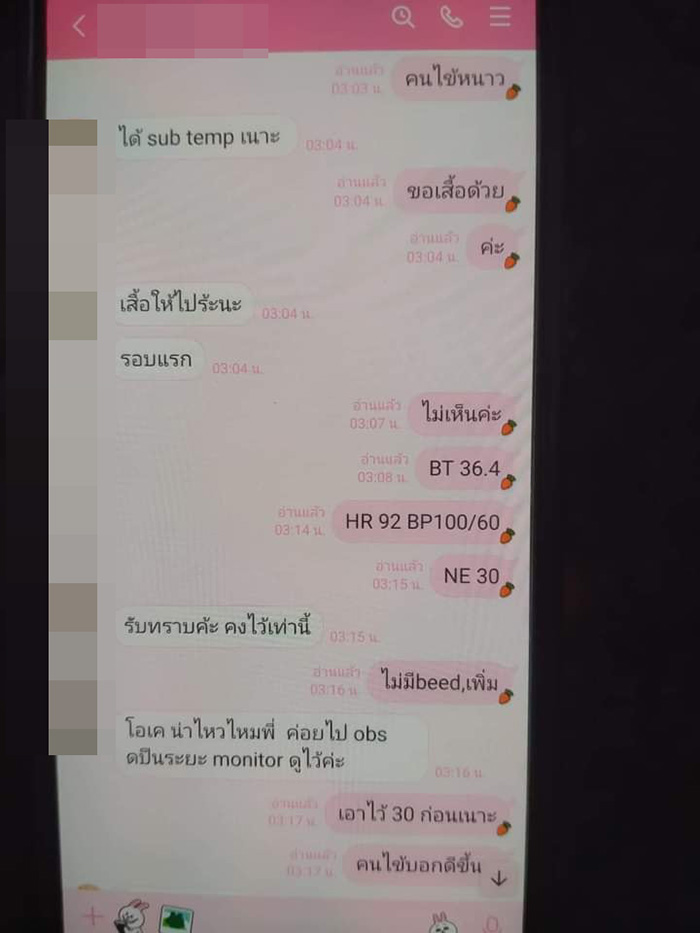 อ่านแล้ว
03:03 น.
คนไข้หนาว
ได้ sub temp เนาะ
03:04 น.
อ่านแล้ว
03:04 น.
ขอเสื้อด้วย
อ่านแล้ว
03:04 น.
ค่ะ
เสื้อให้ไปร้ะนะ
03:04 น.
รอบแรก
03:04 น.
อ่านแล้ว
03:07 น.
ไม่เห็นค่ะ
อ่านแล้ว
03:08 น.
BT 36.4
อ่านแล้ว
03:14 น.
HR 92 BP100/60
อ่านแล้ว
03:15 น.
NE 30
รับทราบค้ะ คงไว้เท่านี้
03:15 น.
อ่านแล้ว
03:16 น.
ไม่มีbeed,เพิ่ม
โอเค น่าไหวไหมพี่ ค่อยไป obs
ดปืนระยะ monitor ดูไว้ค่ะ
03:16 น.
อ่านแล้ว
03:17 น.
เอาไว้ 30 ก่อนเนาะ
อ่านแล้ว
03:17 น.
คนไข้บอกดีขึ้น